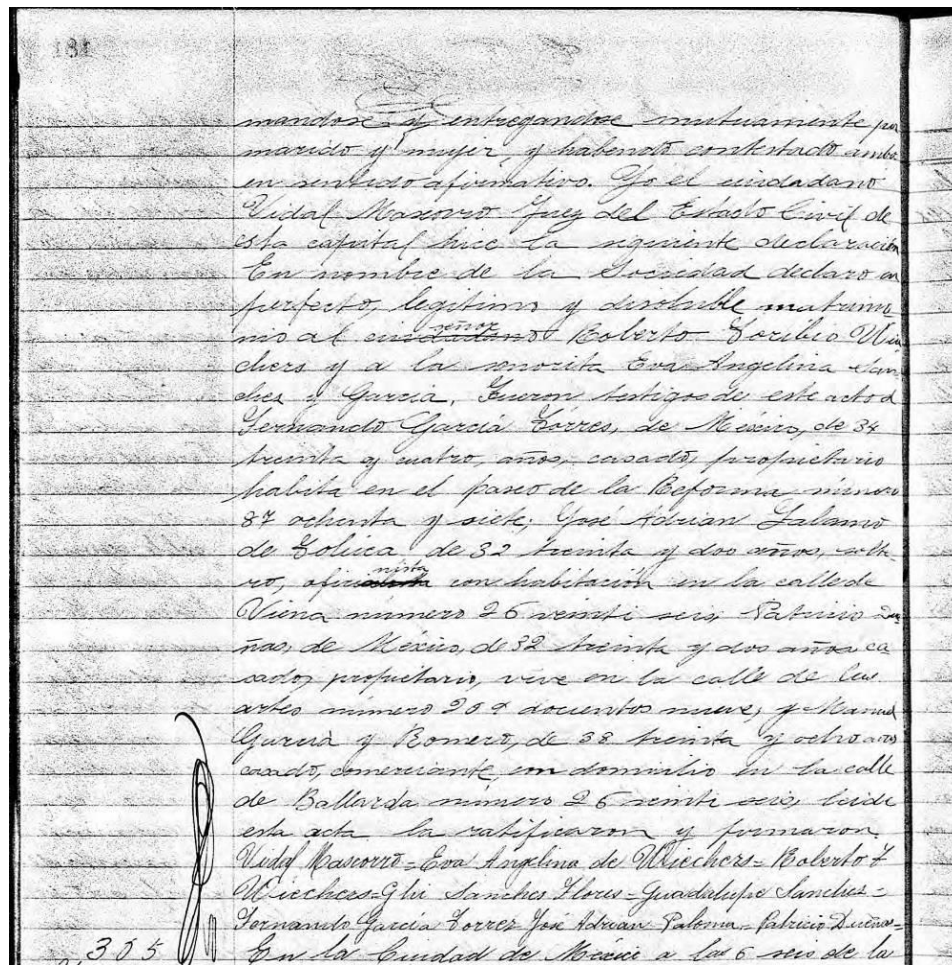 181
mandose y entregandose mutuamente por
marido y mujer, y habendo contestado ambo
en sentido afirmativo. Yo el ciudadano
Vidal Mascorro Juez del Estado Civil de
esta capital hice la siguiente declaración
En nombre de la Sociedad declaro en
perfecto, legitimo y disoluble matrimo
nio al señor Roberto Toribio Wie
chers y a la señorita Eva Angelina San
ches y Garcia. Fueron testigos de este acto
Fernando García Torres, de México, de 34
treinta y cuatro, años, casado, propietario
habita en el paseo de la Reforma número
87 ochenta y siete; José Adrian
de Toluca de 32 treinta y dos años, solte
ro, con habitación en la calle de
Viena número 26 veinti seis, Patricio Du
ñas, de México, de 32 treinta y dos años ca
sado, propietario, vive en la calle de las
artes número 209 docientos nueve, y Manuel
Garcia y Romero, de 38 treinta y ocho años
casado, comerciante, con domicilio en la calle
de número 26 veinti seis, leida
esta acta la ratificaron y firmaron.
Vidal Mascorro = Eva Angelina de Wiechers = Roberto T
Wiechers = Sanches Flores = Guadalupe Sanches =
Fernando García Torres José Adrian = Patricio Dueñas =
305 En la Ciudad de México a las 6 seis de la